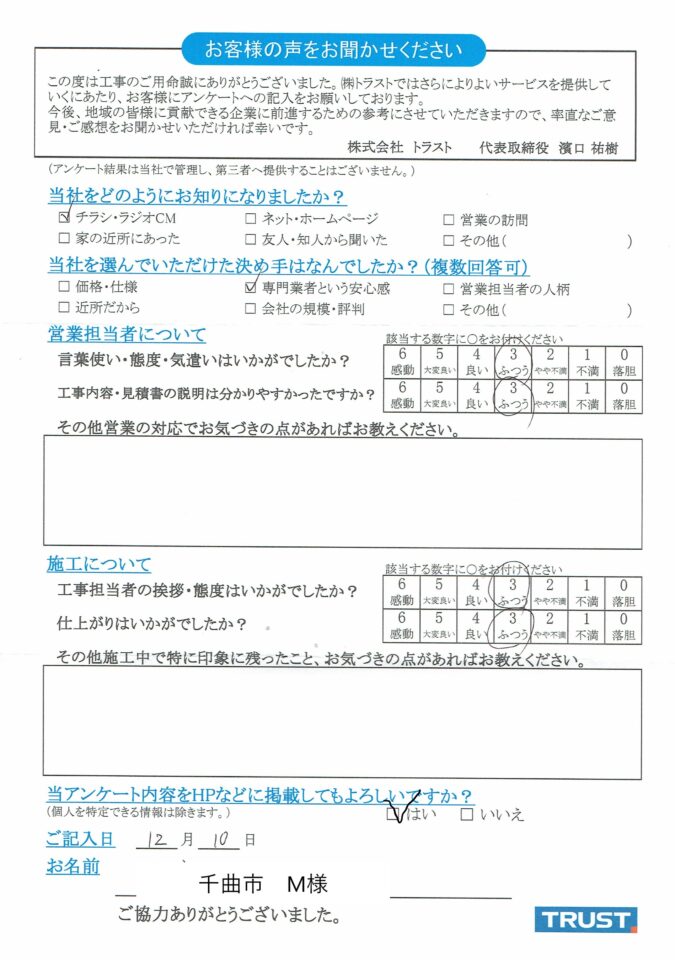 お客様の声をお聞かせください
この度は工事のご用命誠にありがとうございました。㈱トラストではさらによりよいサービスを提供して
いくにあたり、お客様にアンケートへの記入をお願いしております。
今後、地域の皆様に貢献できる企業に前進するための参考にさせていただきますので、率直なご意
見・ご感想をお聞かせいただければ幸いです。
株式会社 トラスト 代表取締役 濱口 祐樹
(アンケート結果は当社で管理し、第三者へ提供することはございません。)
当社をどのようにお知りになりましたか?
☑ チラシ・ラジオCM □ ネット・ホームページ □ 営業の訪問
□ 家の近所にあった □ 友人・知人から聞いた □ その他( )
当社を選んでいただけた決め手はなんでしたか?(複数回答可)
□ 価格・仕様 ☑ 専門業者という安心感 □ 営業担当者の人柄
□ 近所だから □ 会社の規模・評判 □ その他( )
営業担当者について
該当する数字に○をお付けください
言葉使い・態度・気遣いはいかがでしたか?
6 5 4 3 2 1 0
感動 大変良い 良い ふつう やや不満 不満 落胆
工事内容・見積書の説明は分かりやすかったですか?
6 5 4 3 2 1 0
感動 大変良い 良い ふつう やや不満 不満 落胆
その他営業の対応でお気づきの点があればお教えください。
施工について
該当する数字に○をお付けください
工事担当者の挨拶・態度はいかがでしたか?
6 5 4 3 2 1 0
感動 大変良い 良い ふつう やや不満 不満 落胆
仕上がりはいかがでしたか?
6 5 4 3 2 1 0
感動 大変良い 良い ふつう やや不満 不満 落胆
その他施工中で特に印象に残ったこと、お気づきの点があればお教えください。
当アンケート内容をHPなどに掲載してもよろしいですか?
(個人を特定できる情報は除きます。) ☑ はい □ いいえ
ご記入日 12 月 10 日
お名前
千曲市 M様
ご協力ありがとうございました。
TRUST.